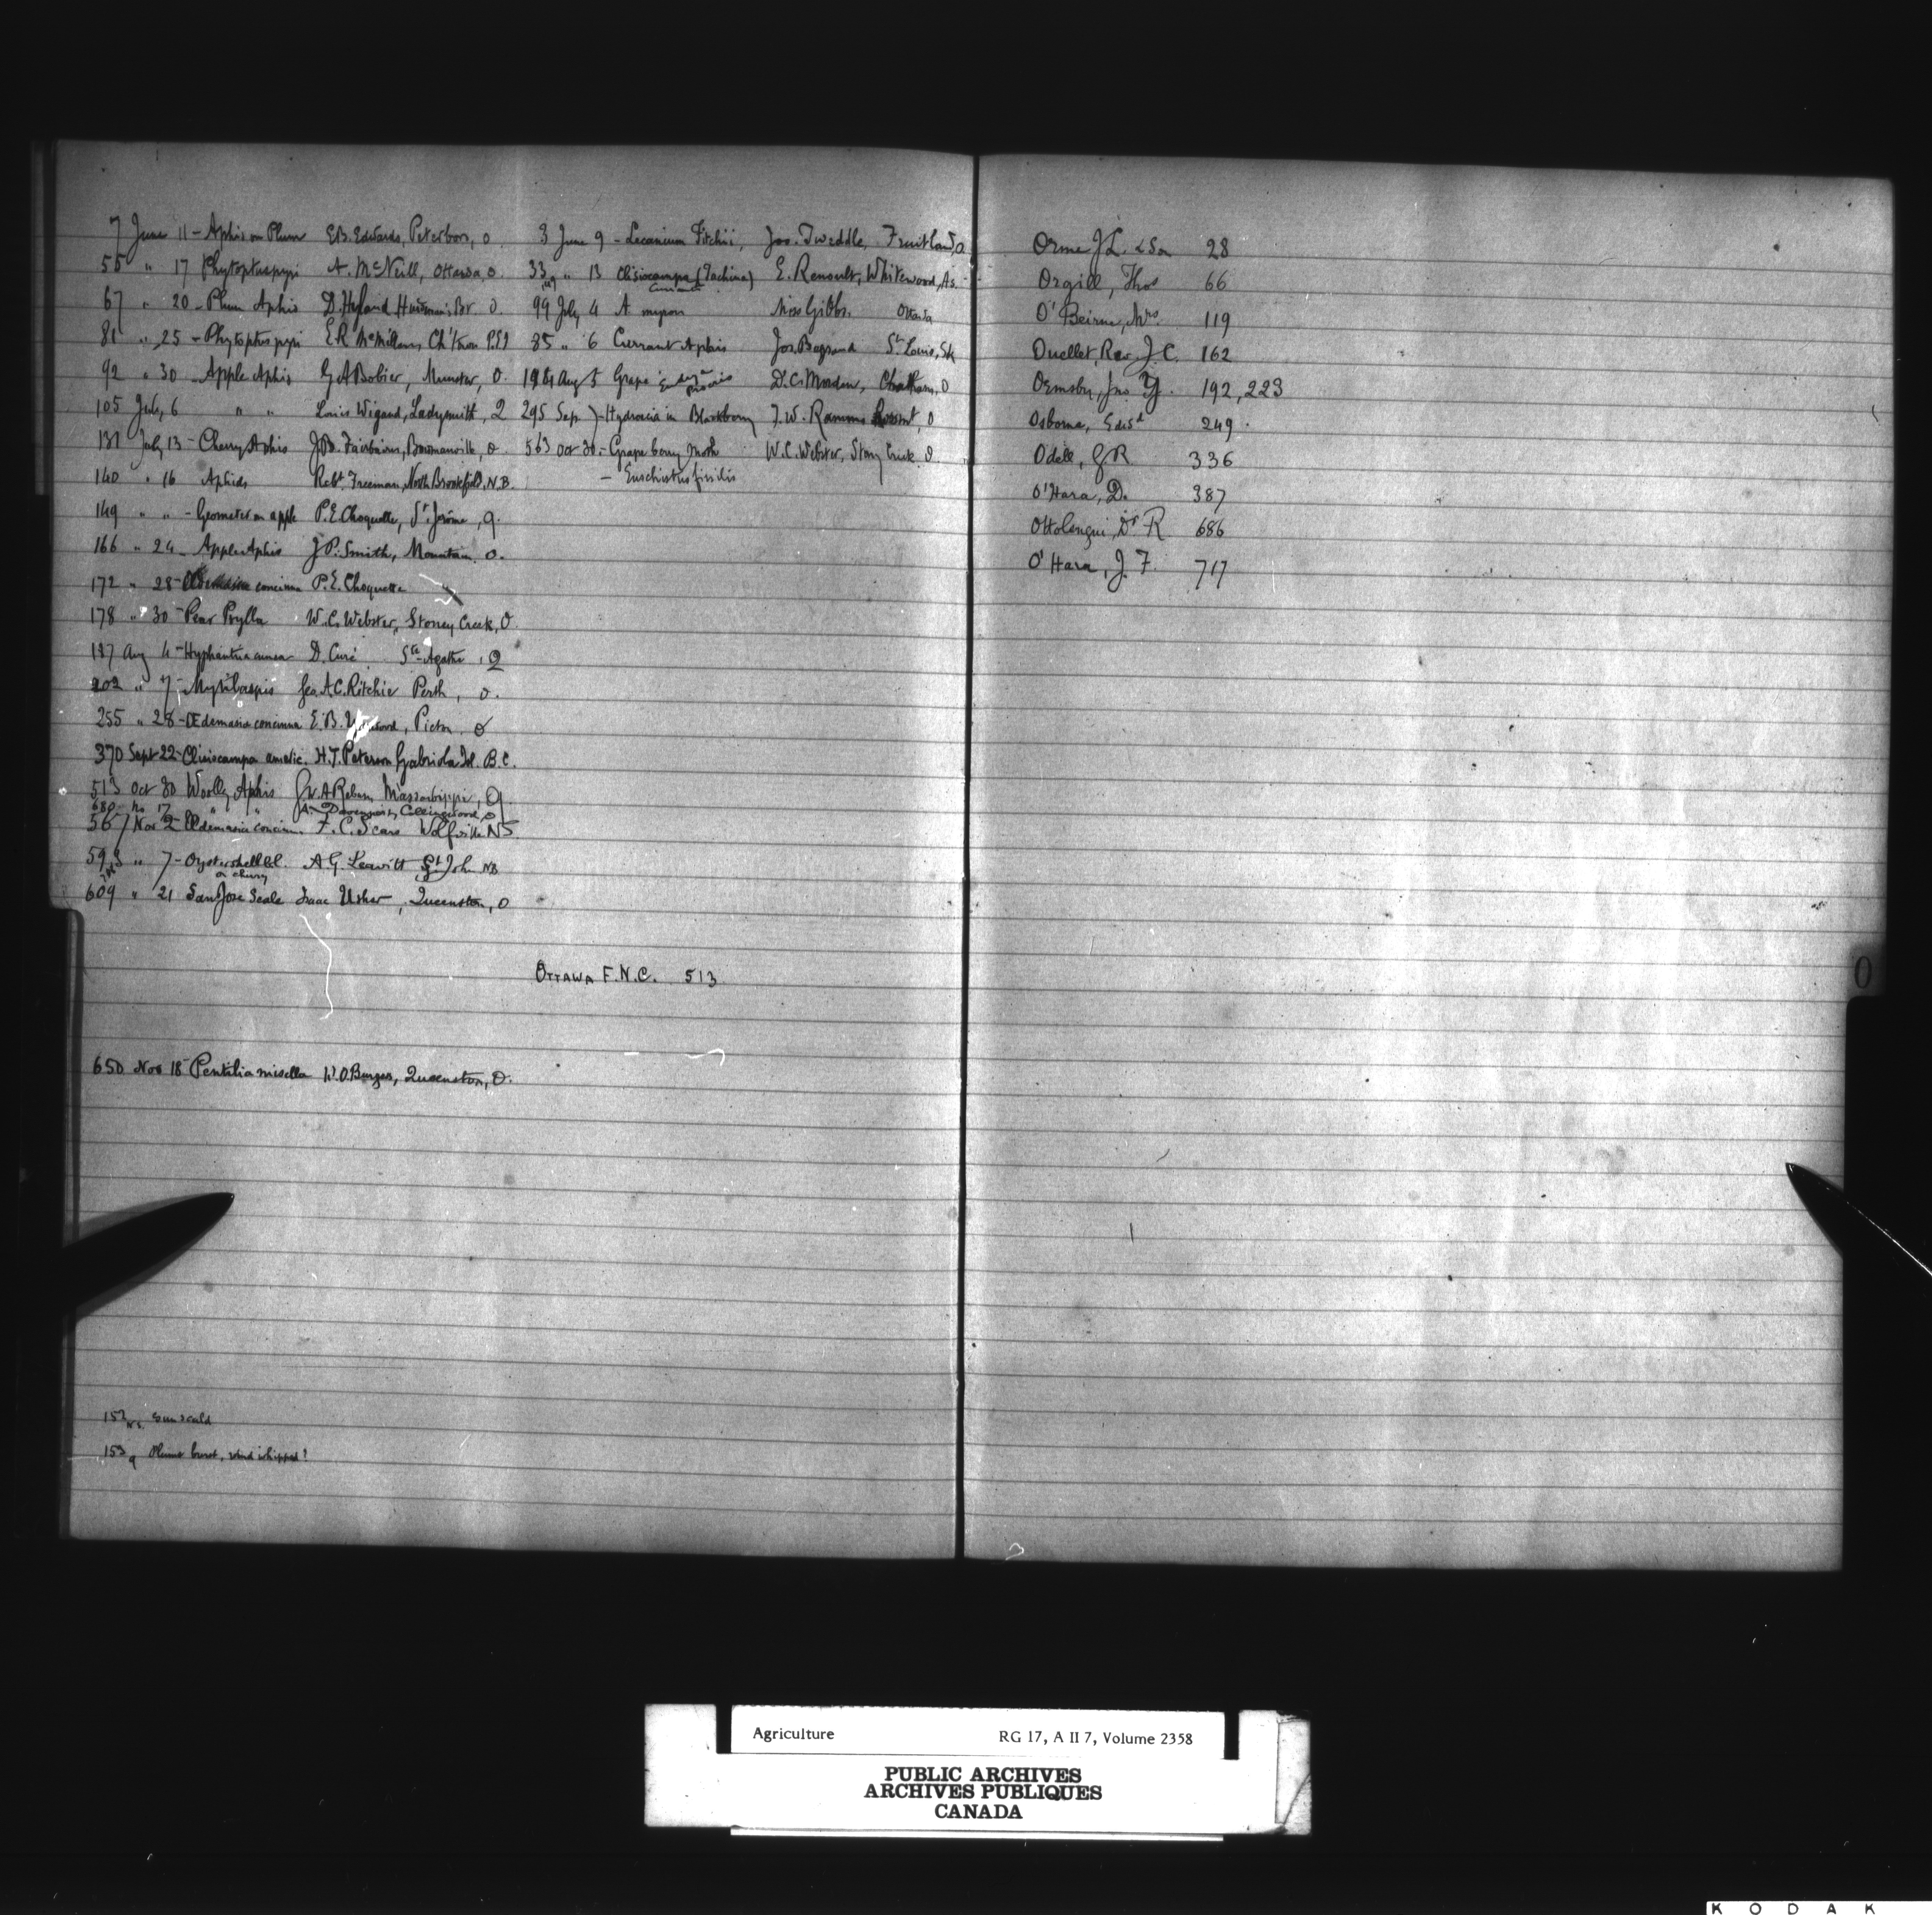 7 June 11 - Aphis on Plum E.B. Edwards, Peterboro, O
55 " 17 Phytoptus pyri A. McNeill, Ottawa, O.
67 " 20 - Plum Aphis D. Hyland Br. O.
81 " 25 - Phytoptus pyri E.R. McMillan, Ch'town P.E.I
92 " 30 Apple Aphis G.A. Bobier, Munster, O.
105 July 6 " " Louis Wigand, Ladysmith, Q
131 July 13 - Cherry Aphis J.B. Fairbairn, Bowmanville, O
140 " 16 Aphids Robt. Freeman, North Brookfield, N.B.
149 " " - Geometer on apple P.E. Choquette, St. Jérôme, Q.
166 " 24 - Apple Aphis J.P. Smith, Mountain O.
172 " 28 - concinna P.E. Choquette "
178 " 30 - Pear Psylla W.C. Webster, Stoney Creek, O.
187 Aug 4 - Hyphantria cunea D. Curé Ste. Agathe, Q
202 " 7 - Mytilaspis Geo. A.C. Ritchie Perth, O.
255 " 28 - Œdemasia concinna E.B. Picton, O
370 Sept 22 - Clisiocampa americ. H.T. Peterson Gabriola Isl. B.C.
513 Oct 30 Woolly Aphis Massawippi, Q
680 No 17 " " Collingwood, O
567 Nov 2 - Œdemasia concinn. F.C. Sears Wolfville N.S.
593 " 7 - Oystershell bl. A.G. Leavitt St John NB
on cherry
609 " 21 San Jose Scale Isaac Usher, Queenston, O
650 Nov 18 Pentilia misella W.O. Burgess, Queenston, O.
152 N.S. Sunscald
153 Q Plums burst, wind whipped?
3 June 9 - Lecanium Fitchii, Jos. Tweddle, Fruitland, O
33 " 13 Clisiocampa (Tachina) E. Renoult, Whitewood, As.
99 July 4 A. myron Miss Gibbs. Ottawa
85 " 6 Currant Aphis Jos. St. Louis, Sk
Aug 5 Grape Procris D.C. Morden, Chatham, O
295 Sep 7 - Hydroecia in Blackberry J.W. O
563 Oct 30 - Grape berry Moth W.C. Webster, Stony Creek O
- Euschistus fissilis
OTTAWA F.N.C. 513
Orme J.L. & Son 28
Orgill, Thos 66
O'Beirne, Mrs. 119
Ouellet, Rev. J.C. 162
Ormsby, Jno Y. 192, 223
Osborne, Edwd 249.
Odell, G R 336
O'Hara, D. 387
Ottolengui, Dr R 686
O'Hara, J. F. 717
O
Agriculture RG 17, A II 7, Volume 2358
PUBLIC ARCHIVES
ARCHIVES PUBLIQUES
CANADA
KODAK